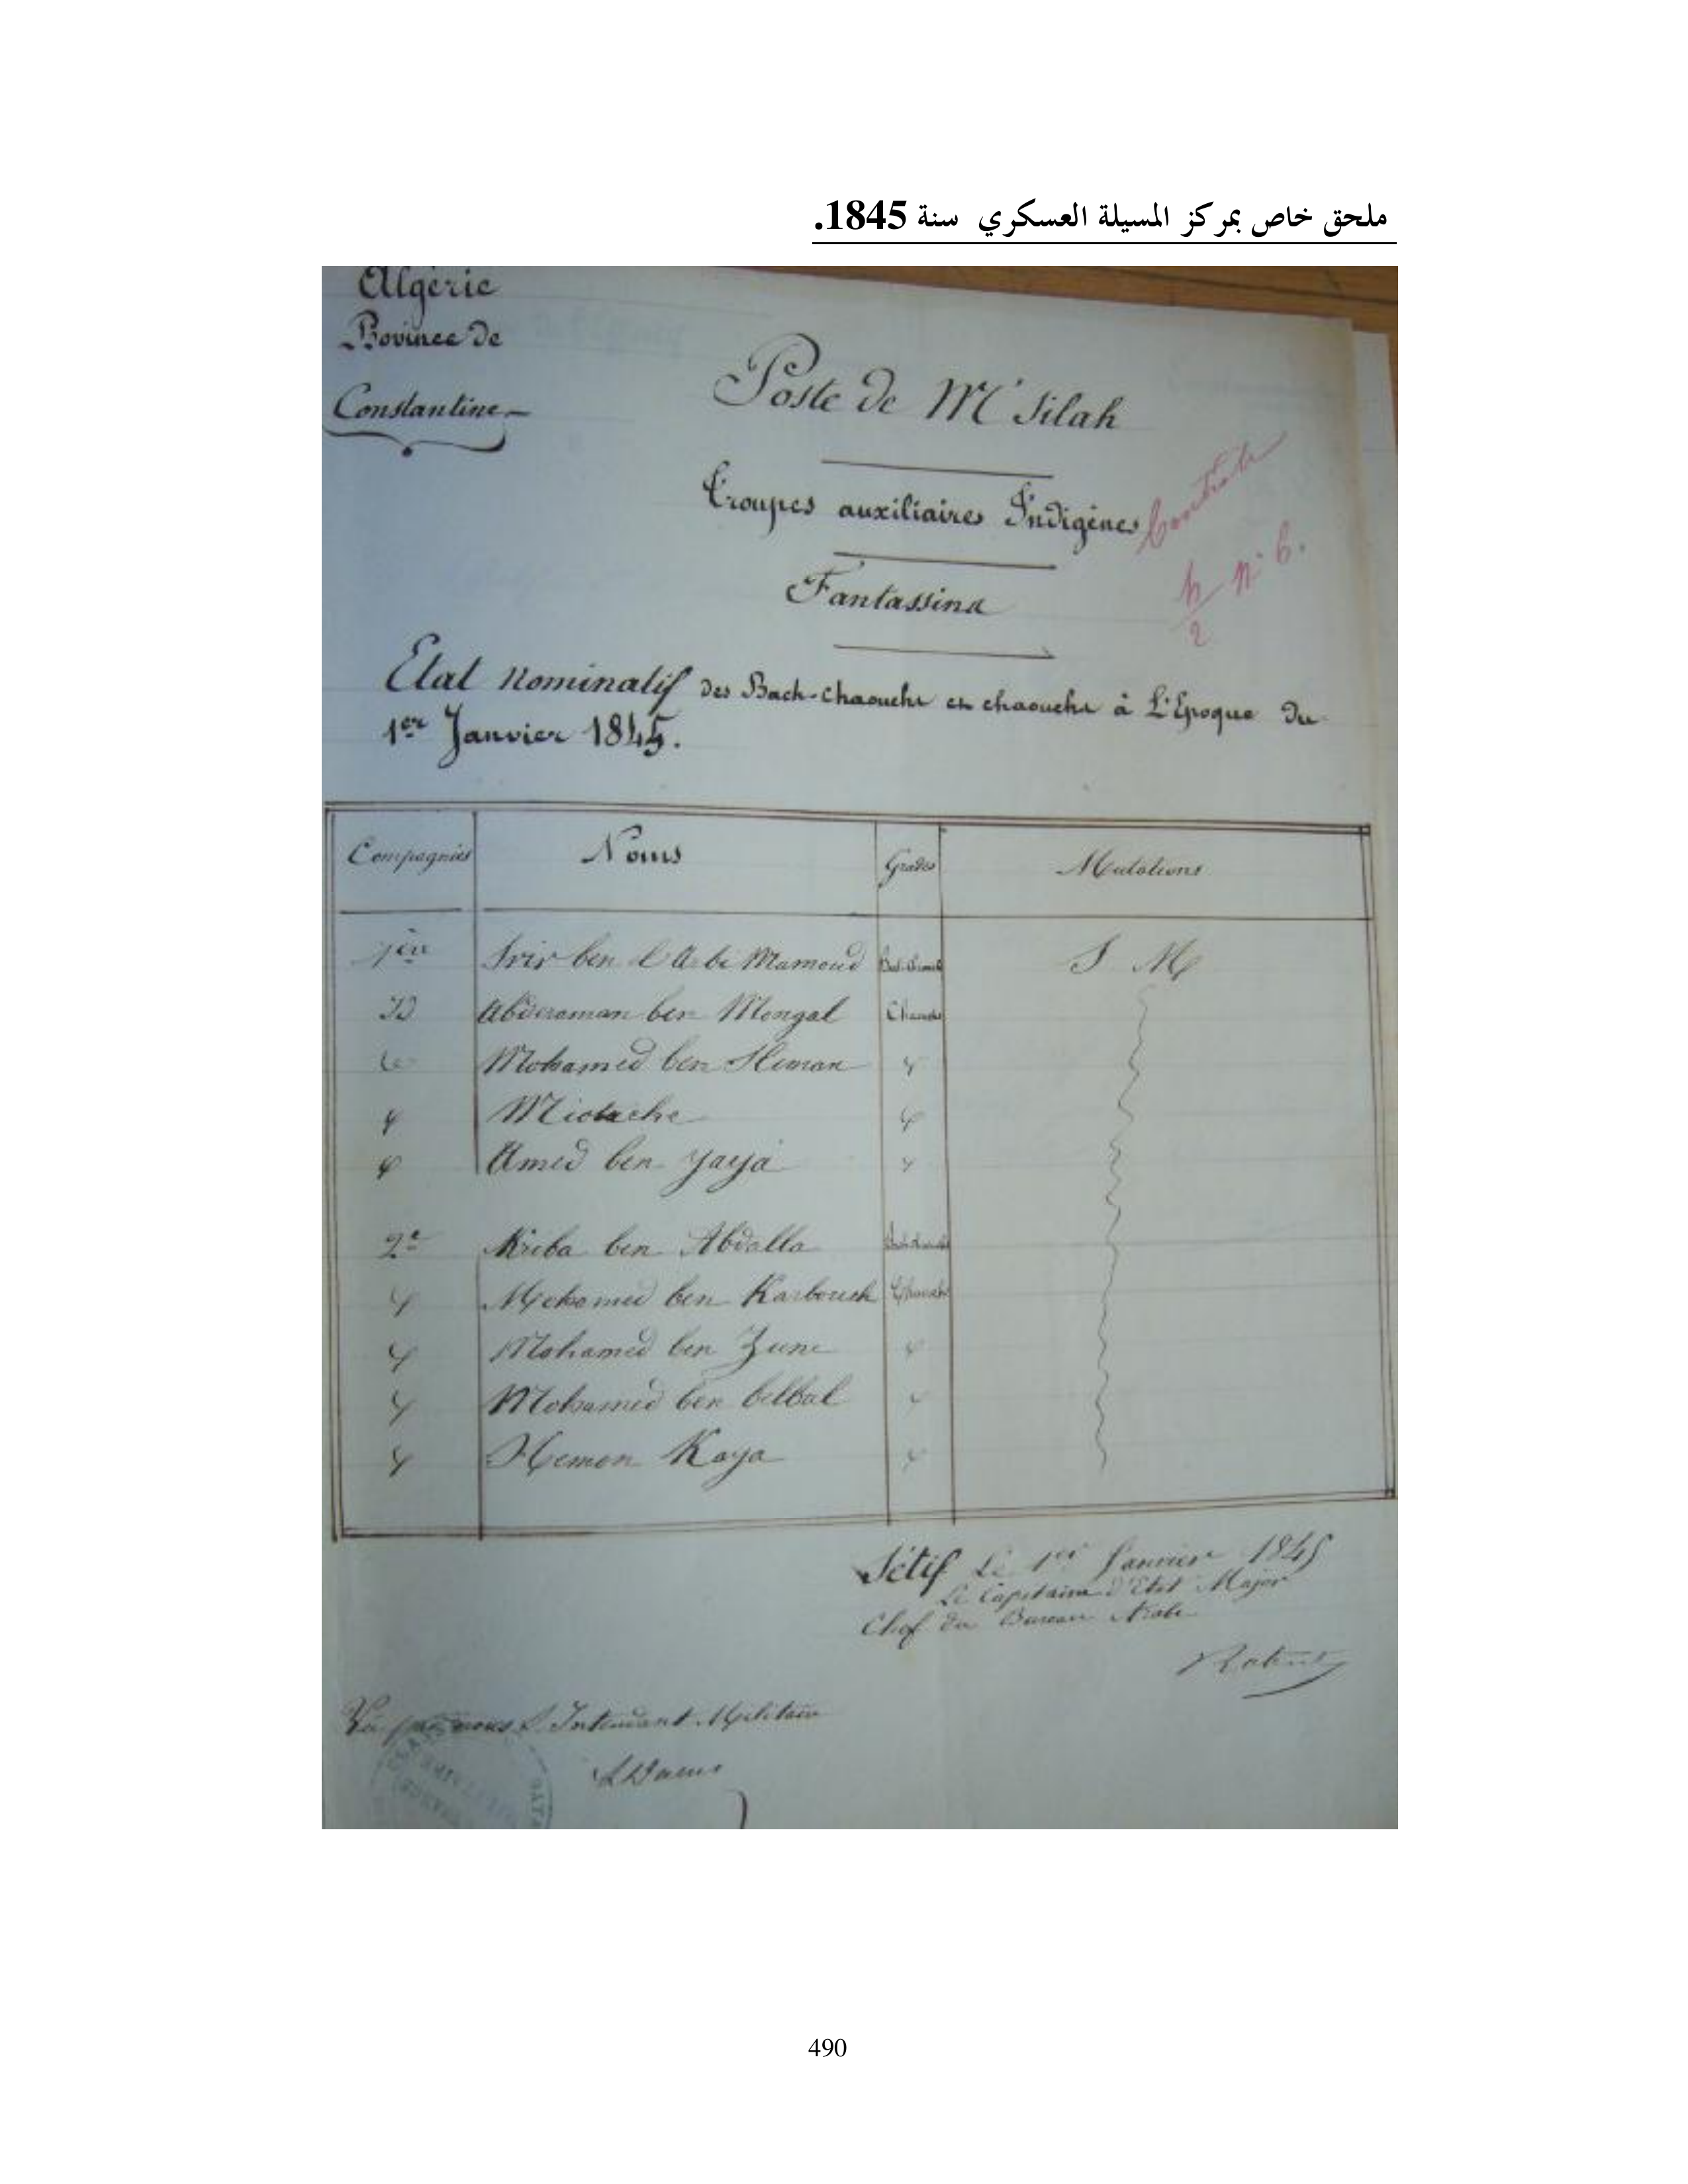 ملحق خاص بمركز المسيلة العسكري سنة 1845.
Algérie
Province de
Constantine
Poste de M'silah
Troupes auxiliaires Indigènes
Contrôle
Fantassins
n° 6.
2
Etat Nominatif des Bach-chaouchs et chaouchs à L'Epoque du
1er Janvier 1845.
Compagnies Noms Grades Mutations
1ère Srir ben l'Arbi Mamoud Bach-chaouch S M
Abderaman ben Mongal Chaouch
Mohamed ben Sliman
Amed ben yaya
2e Kriba ben Abdalla Bach-chaouch
Mohamed ben Karbouch Chaouch
Mohamed ben Zune
Mohamed ben belbal
Hemon Kaya
Sétif Le 1er Janvier 1845
Le Capitaine d'Etat Major
Chef du Bureau Arabe
Vu par nous S. Intendant Militaire
490